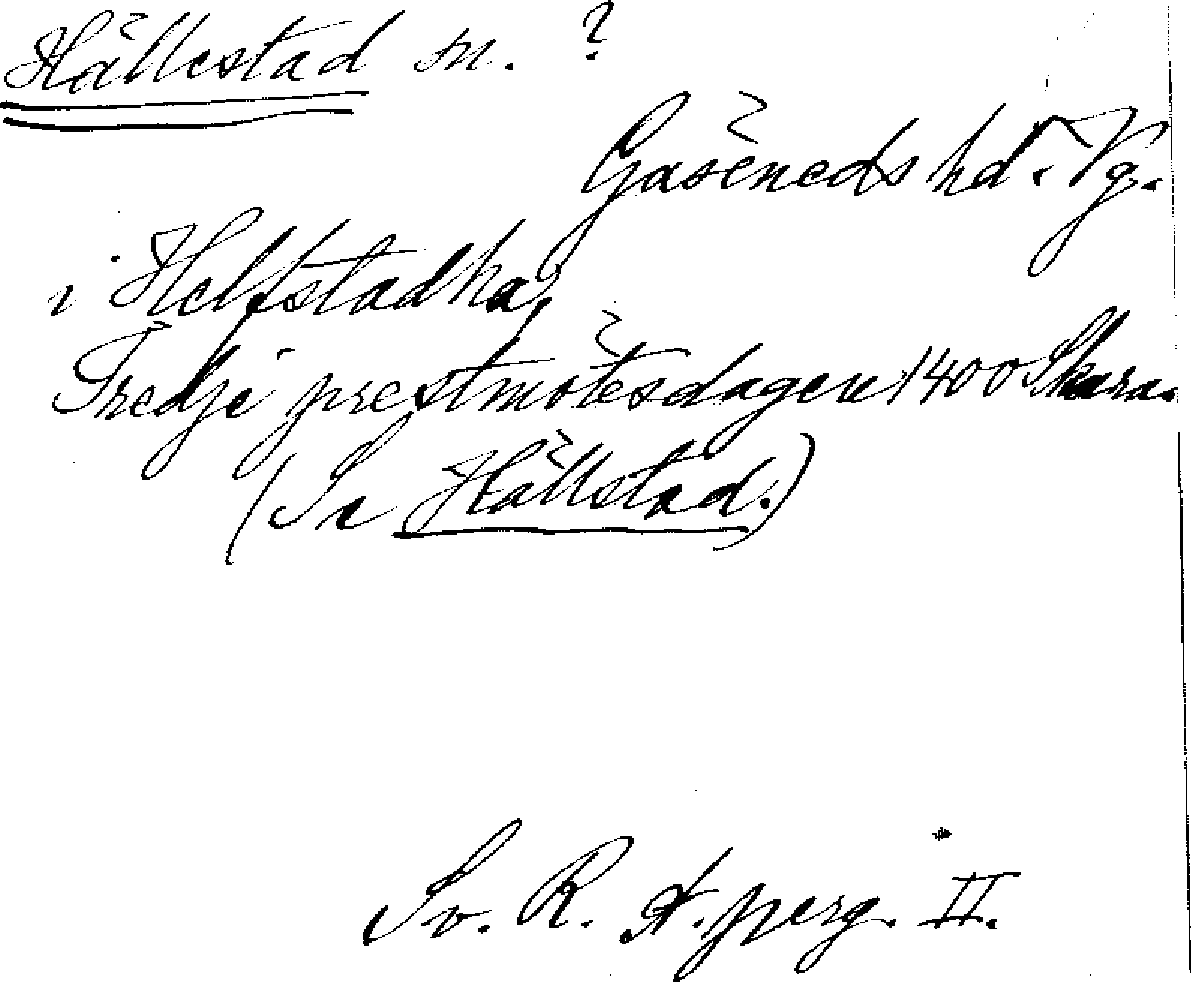 Hällestad sn. ?
Gäseneds hd. Vg.
i Helfstadha,
Tredje prestmötesdagen 1400 Skara.
(Se Hällstad.)
Sv. R. A. perg. II.